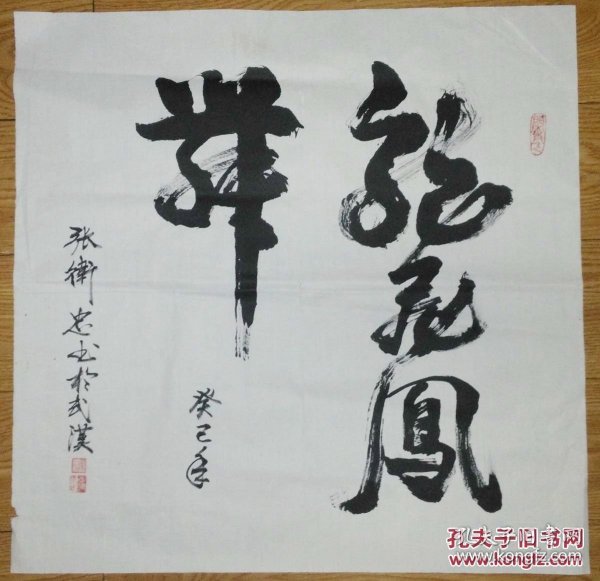 龍飛鳳
舞
癸巳年
張衛忠书於武漢
孔夫子旧书网
www.kongfz.com